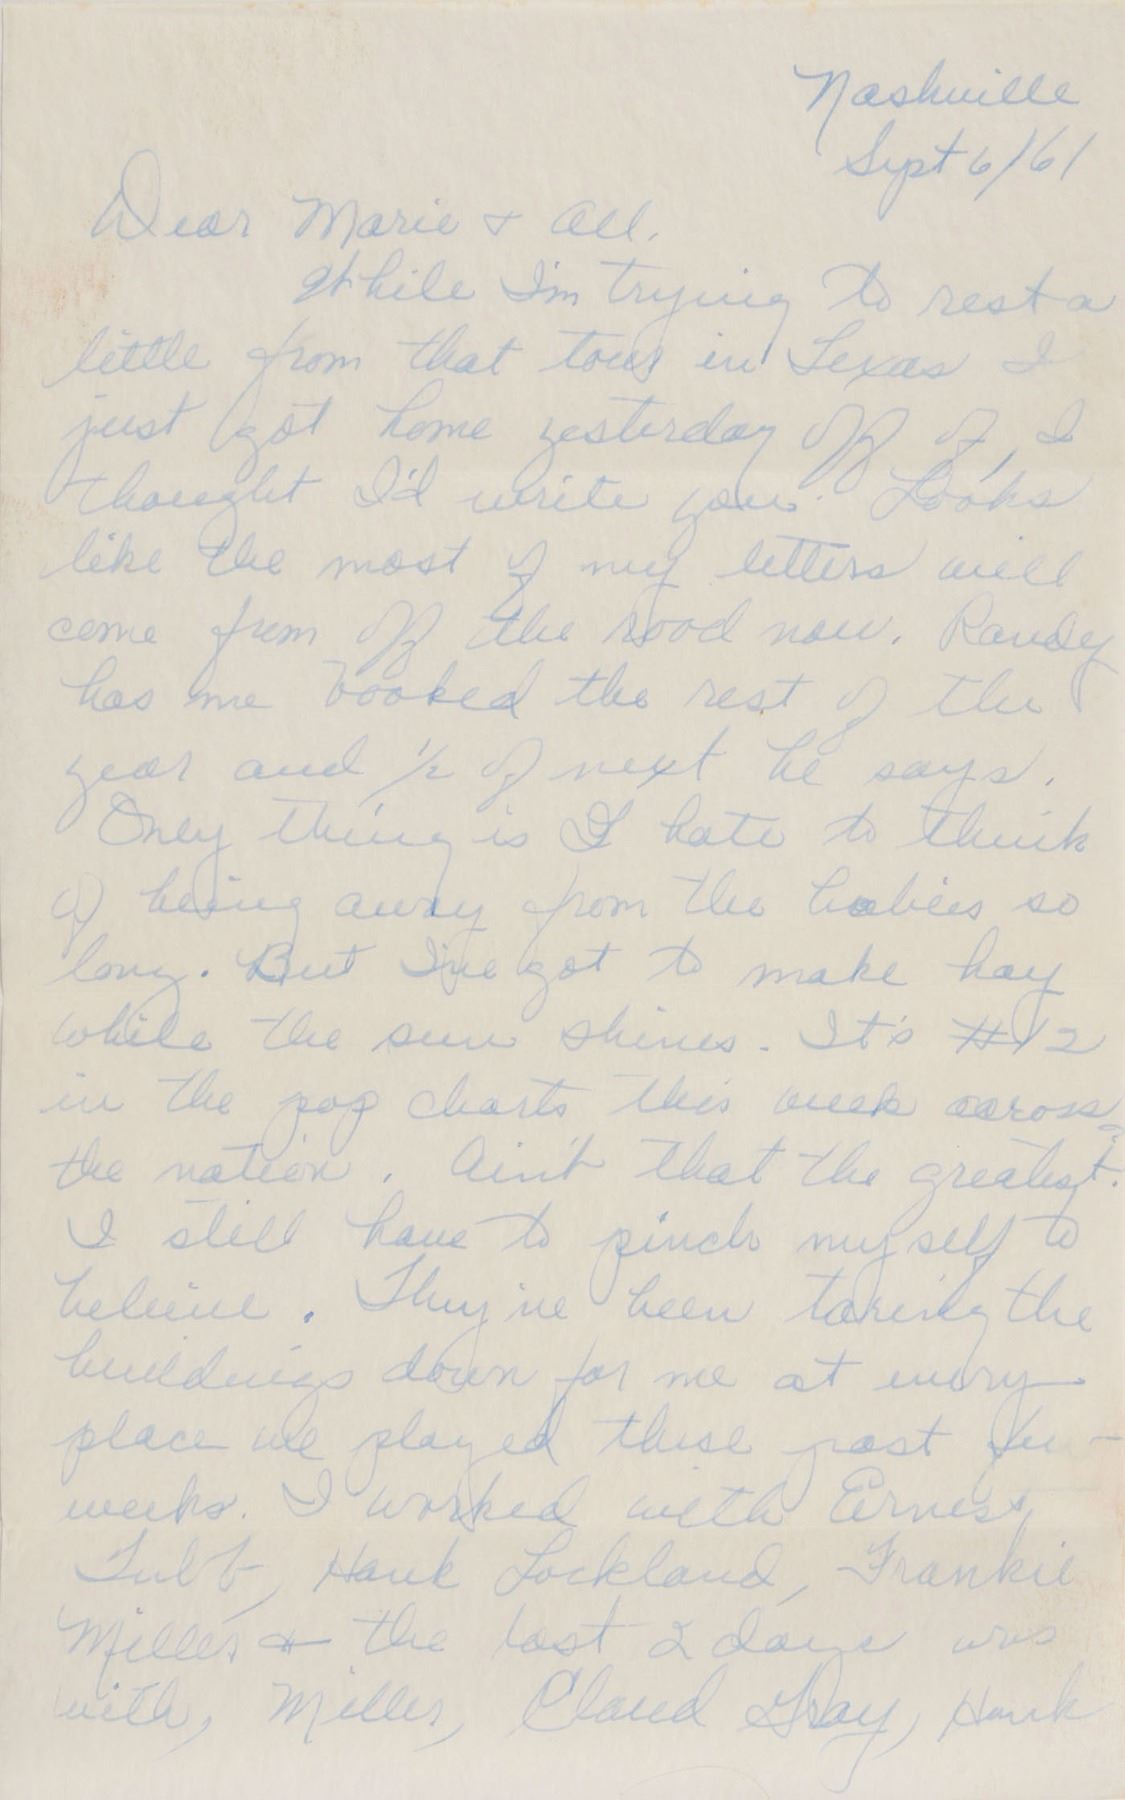 Nashville
Sept 6/61
Dear Marie & All.
While I'm trying to rest a
little from that tour in Texas I
just got home yesterday off of, I
thought I'd write you. Looks
like the most of my letters will
come from off the road now. Randy
has me booked the rest of the
year and 1/2 of next he says.
Only thing is I hate to think
of being away from the babies so
long. But I've got to make hay
while the sun shines. It's #12
in the pop charts this week across
the nation. Ain't that the greatest.
I still have to pinch myself to
believe. They've been taring the
buildings down for me at every
place we played these past few
weeks. I worked with Ernest
Tubb, Hank Lockland, Frankie
Miller & the last 2 days was
with, Miller, Claud Gray, Hank